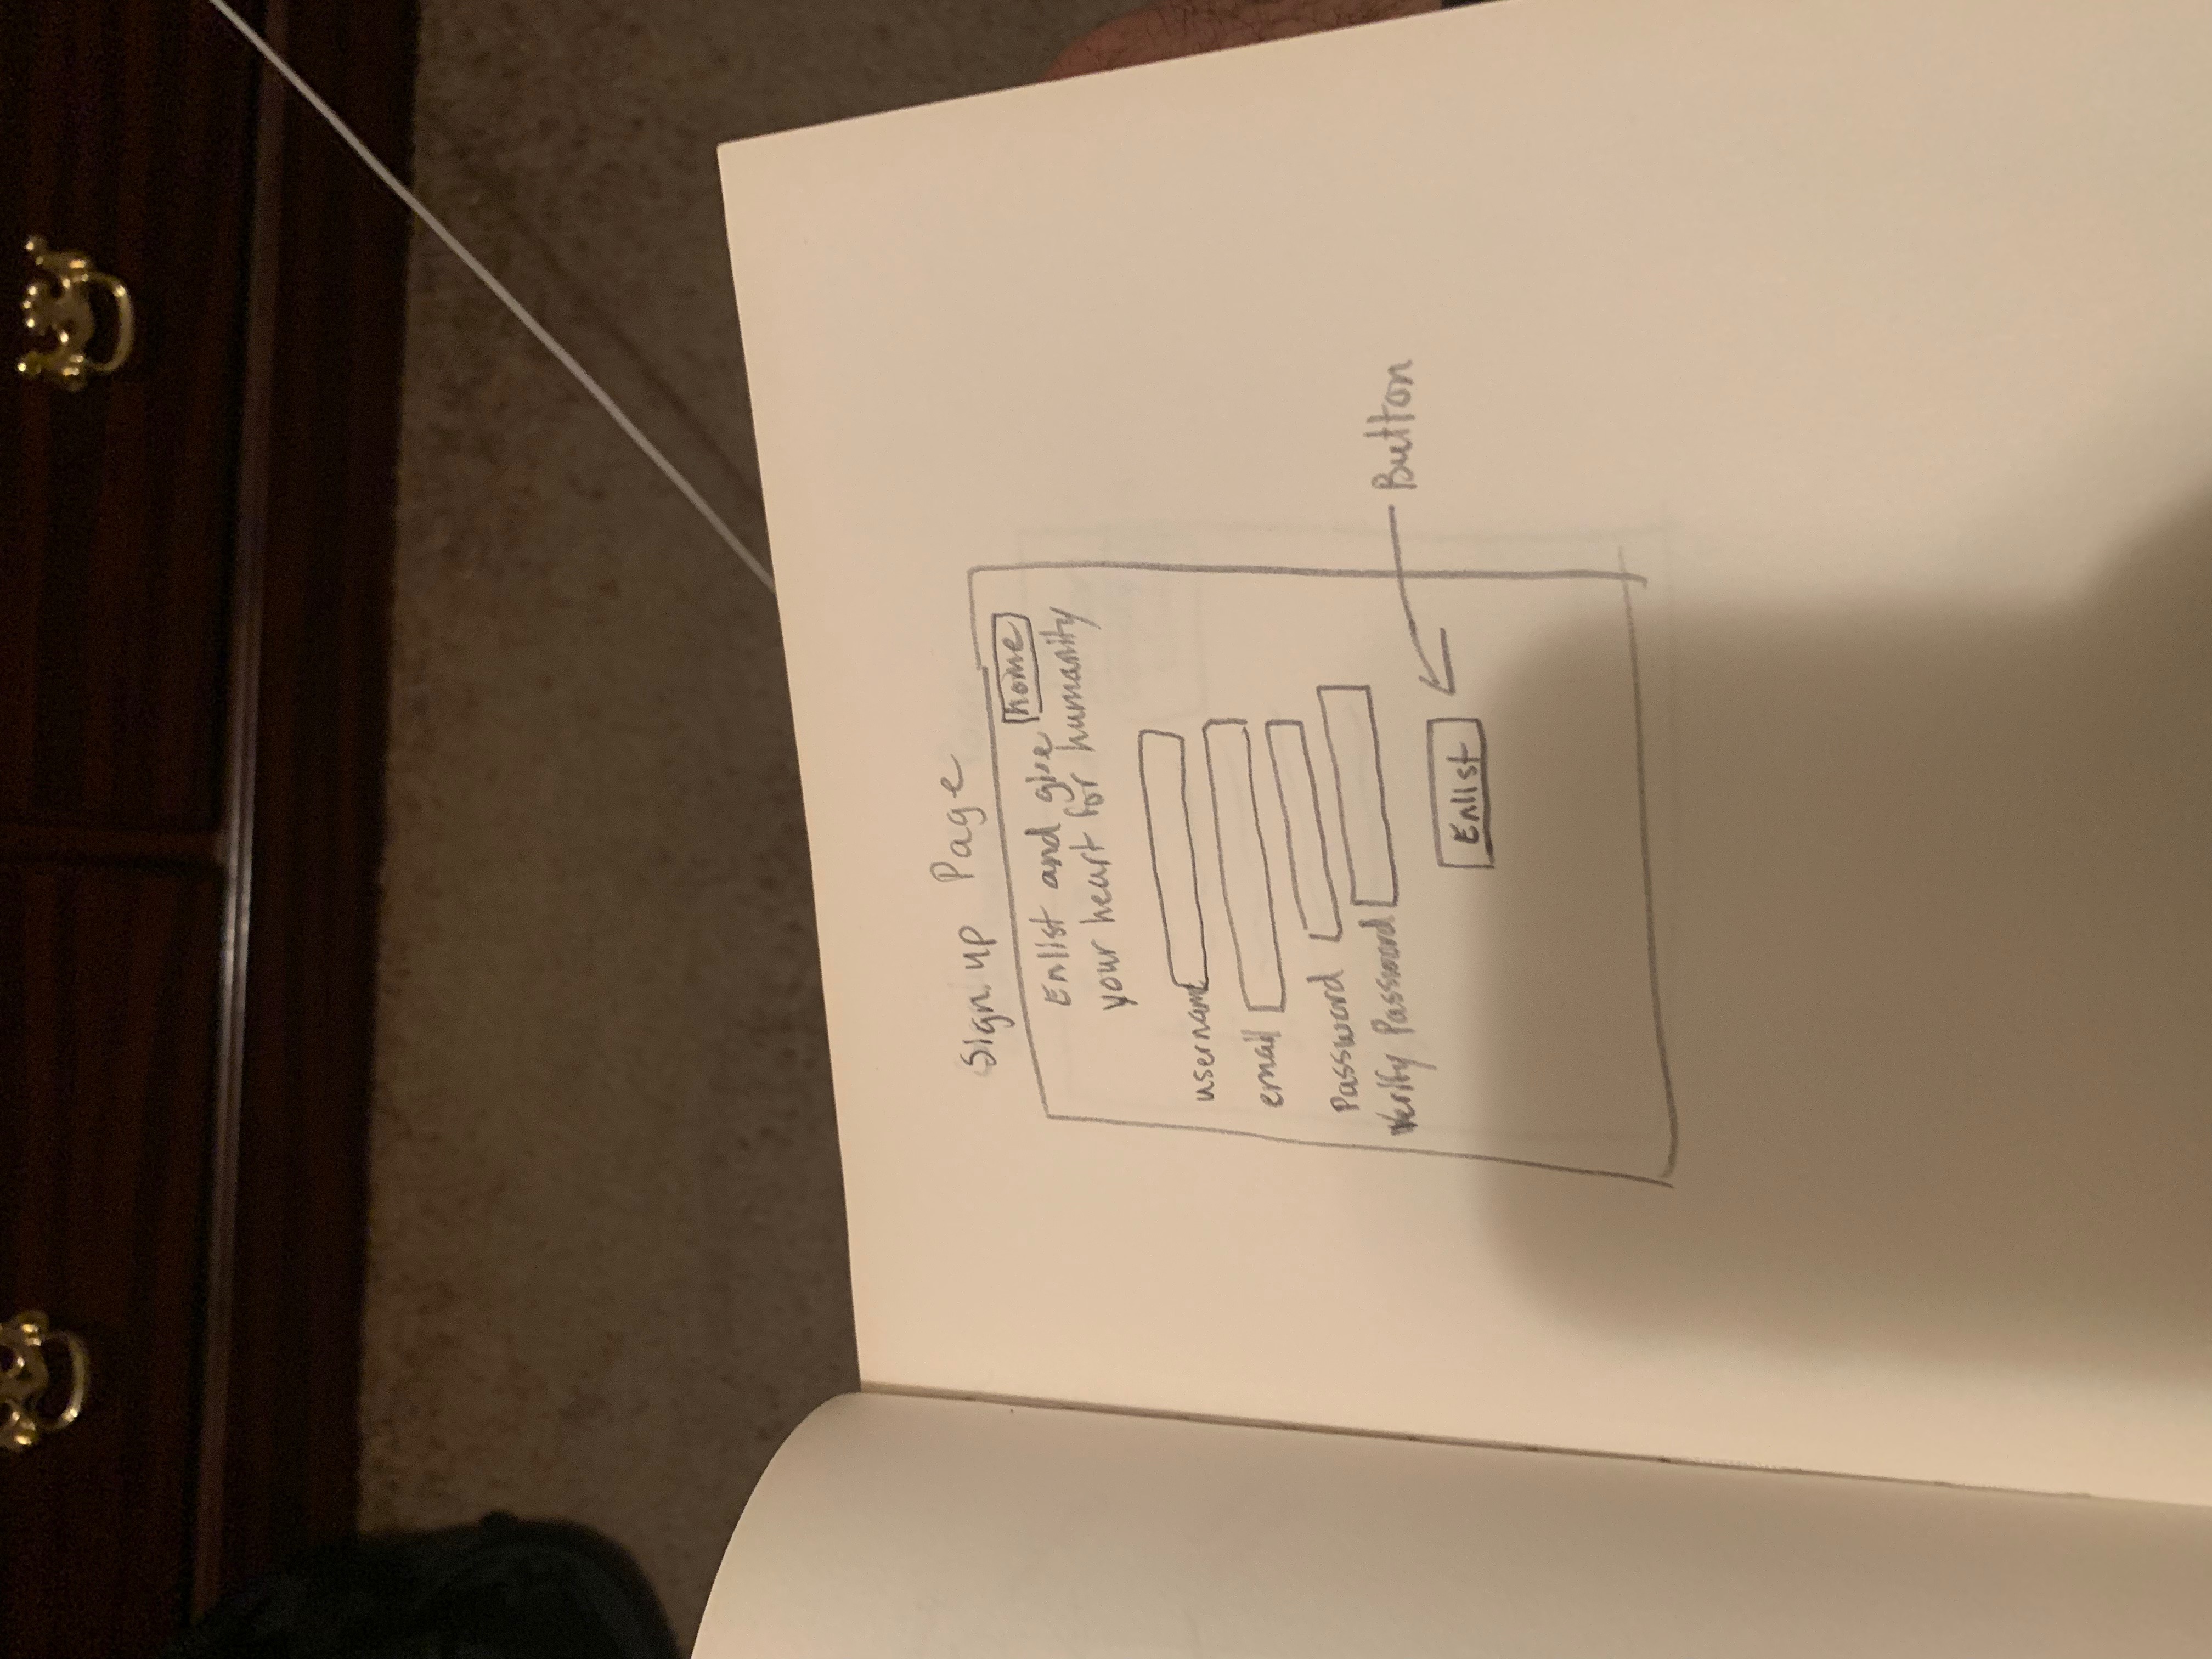 Sign up Page
home
Enlist and give
your heart for humanity
username
email
Password
Verify Password
Button
Enlist